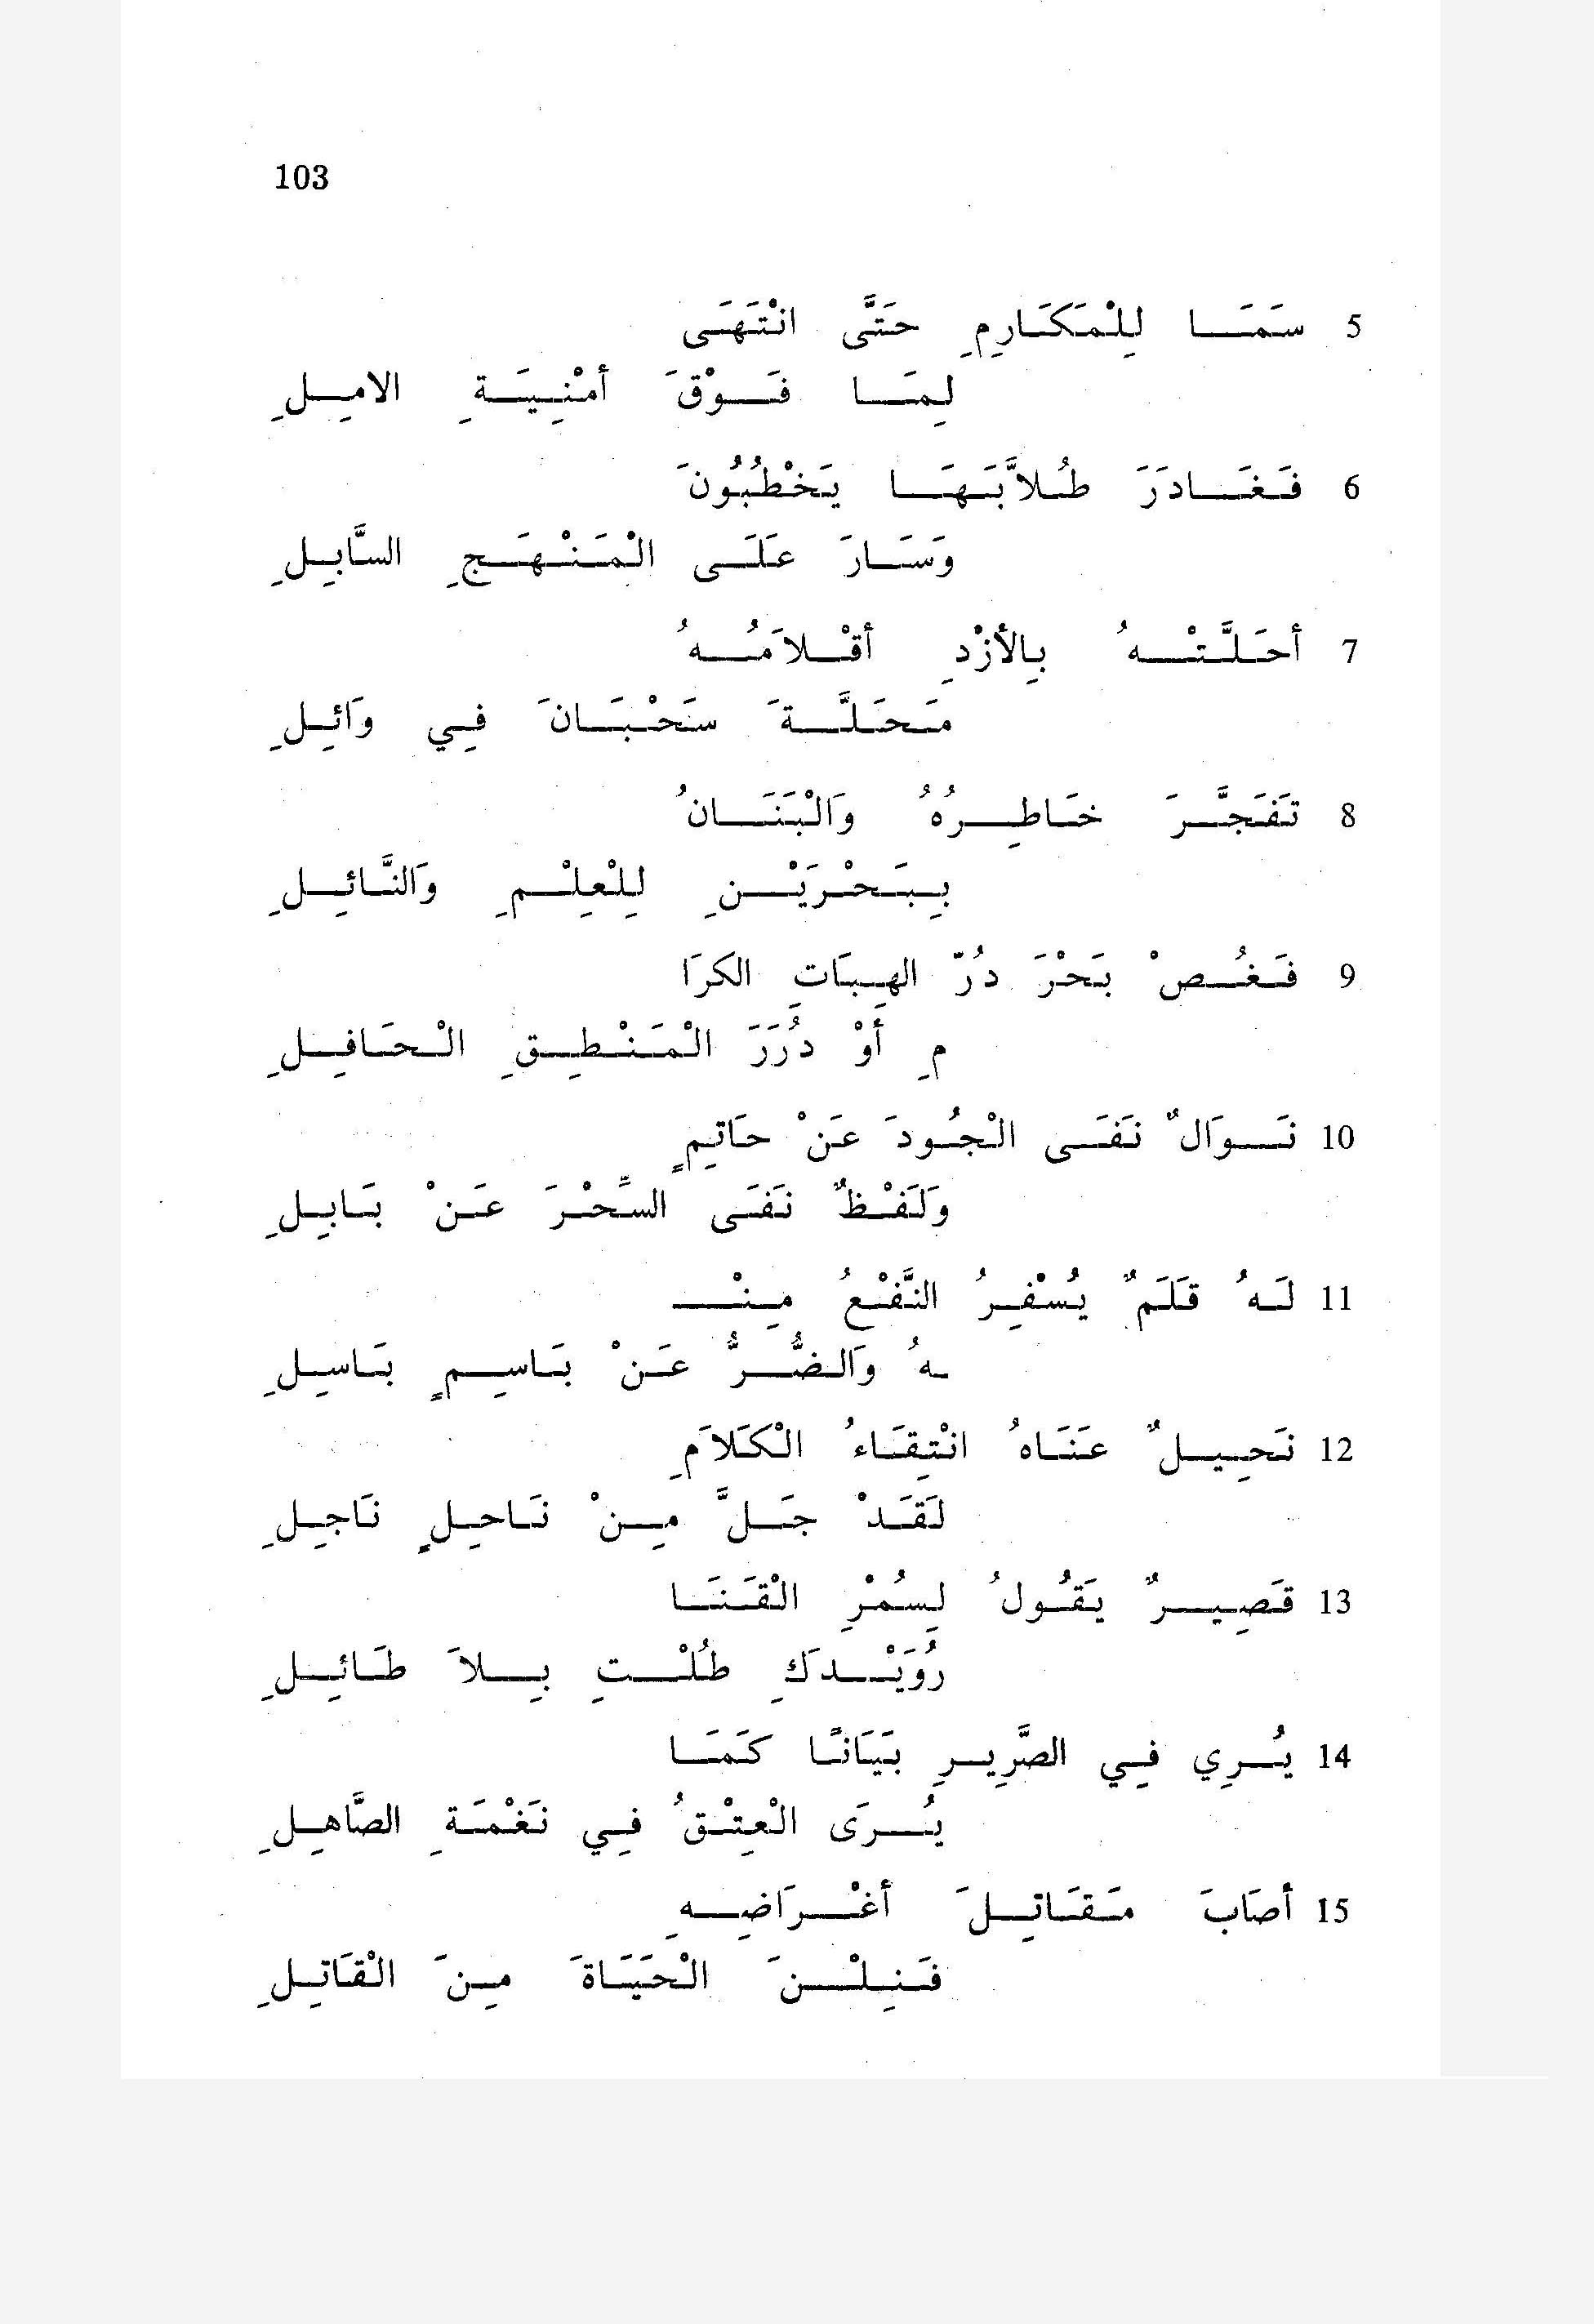 103
5 سَمَا لِلْمَكَارِمِ حَتَّى انْتَهَى
لِمَا فَوْقَ أمْنِيَةِ الامِلِ
6 فَغَادَرَ طُلاَّبَهَا يَخْطُبُونَ
وَسَارَ عَلَى الْمَنْهَجِ السَّابِلِ
7 أحَلَّتْهُ بِالأزْدِ أقْلاَمُهُ
مَحَلَّةَ سَحْبَانَ فِي وَائِلِ
8 تَفَجَّرَ خَاطِرُهُ وَالْبَنَانُ
بِبَحْرَيْنِ لِلْعِلْمِ وَالنَّائِلِ
9 فَغُصْ بَحْرَ دُرّ الهِبَاتِ الكرَا
مِ أَوْ دُرَرَ الْمَنْطِقِ الْحَافِلِ
10 نَوَالٌ نَفَى الْجُودَ عَنْ حَاتِمٍ
وَلَفْظٌ نَفَى السِّحْرَ عَنْ بَابِلِ
11 لَهُ قَلَمٌ يُسْفِرُ النَّفْعُ مِنْـ
ـهُ وَالضُّرُّ عَنْ بَاسِمٍ بَاسِلِ
12 نَحِيلٌ عَنَاهُ انْتِقَاءُ الْكَلاَمِ
لَقَدْ جَلَّ مِنْ نَاحِلٍ نَاجِلِ
13 قَصِيرٌ يَقُولُ لِسُمْرِ الْقَنَا
رُوَيْدَكِ طُلْتِ بِلاَ طَائِلِ
14 يُرِي فِي الصَّرِيرِ بَيَانًا كَمَا
يُرَى الْعِتْقُ فِي نَغْمَةِ الصَّاهِلِ
15 أصَابَ مَقَاتِلَ أغْرَاضِهِ
فَنِلْنَ الْحَيَاةَ مِنَ الْقَاتِلِ